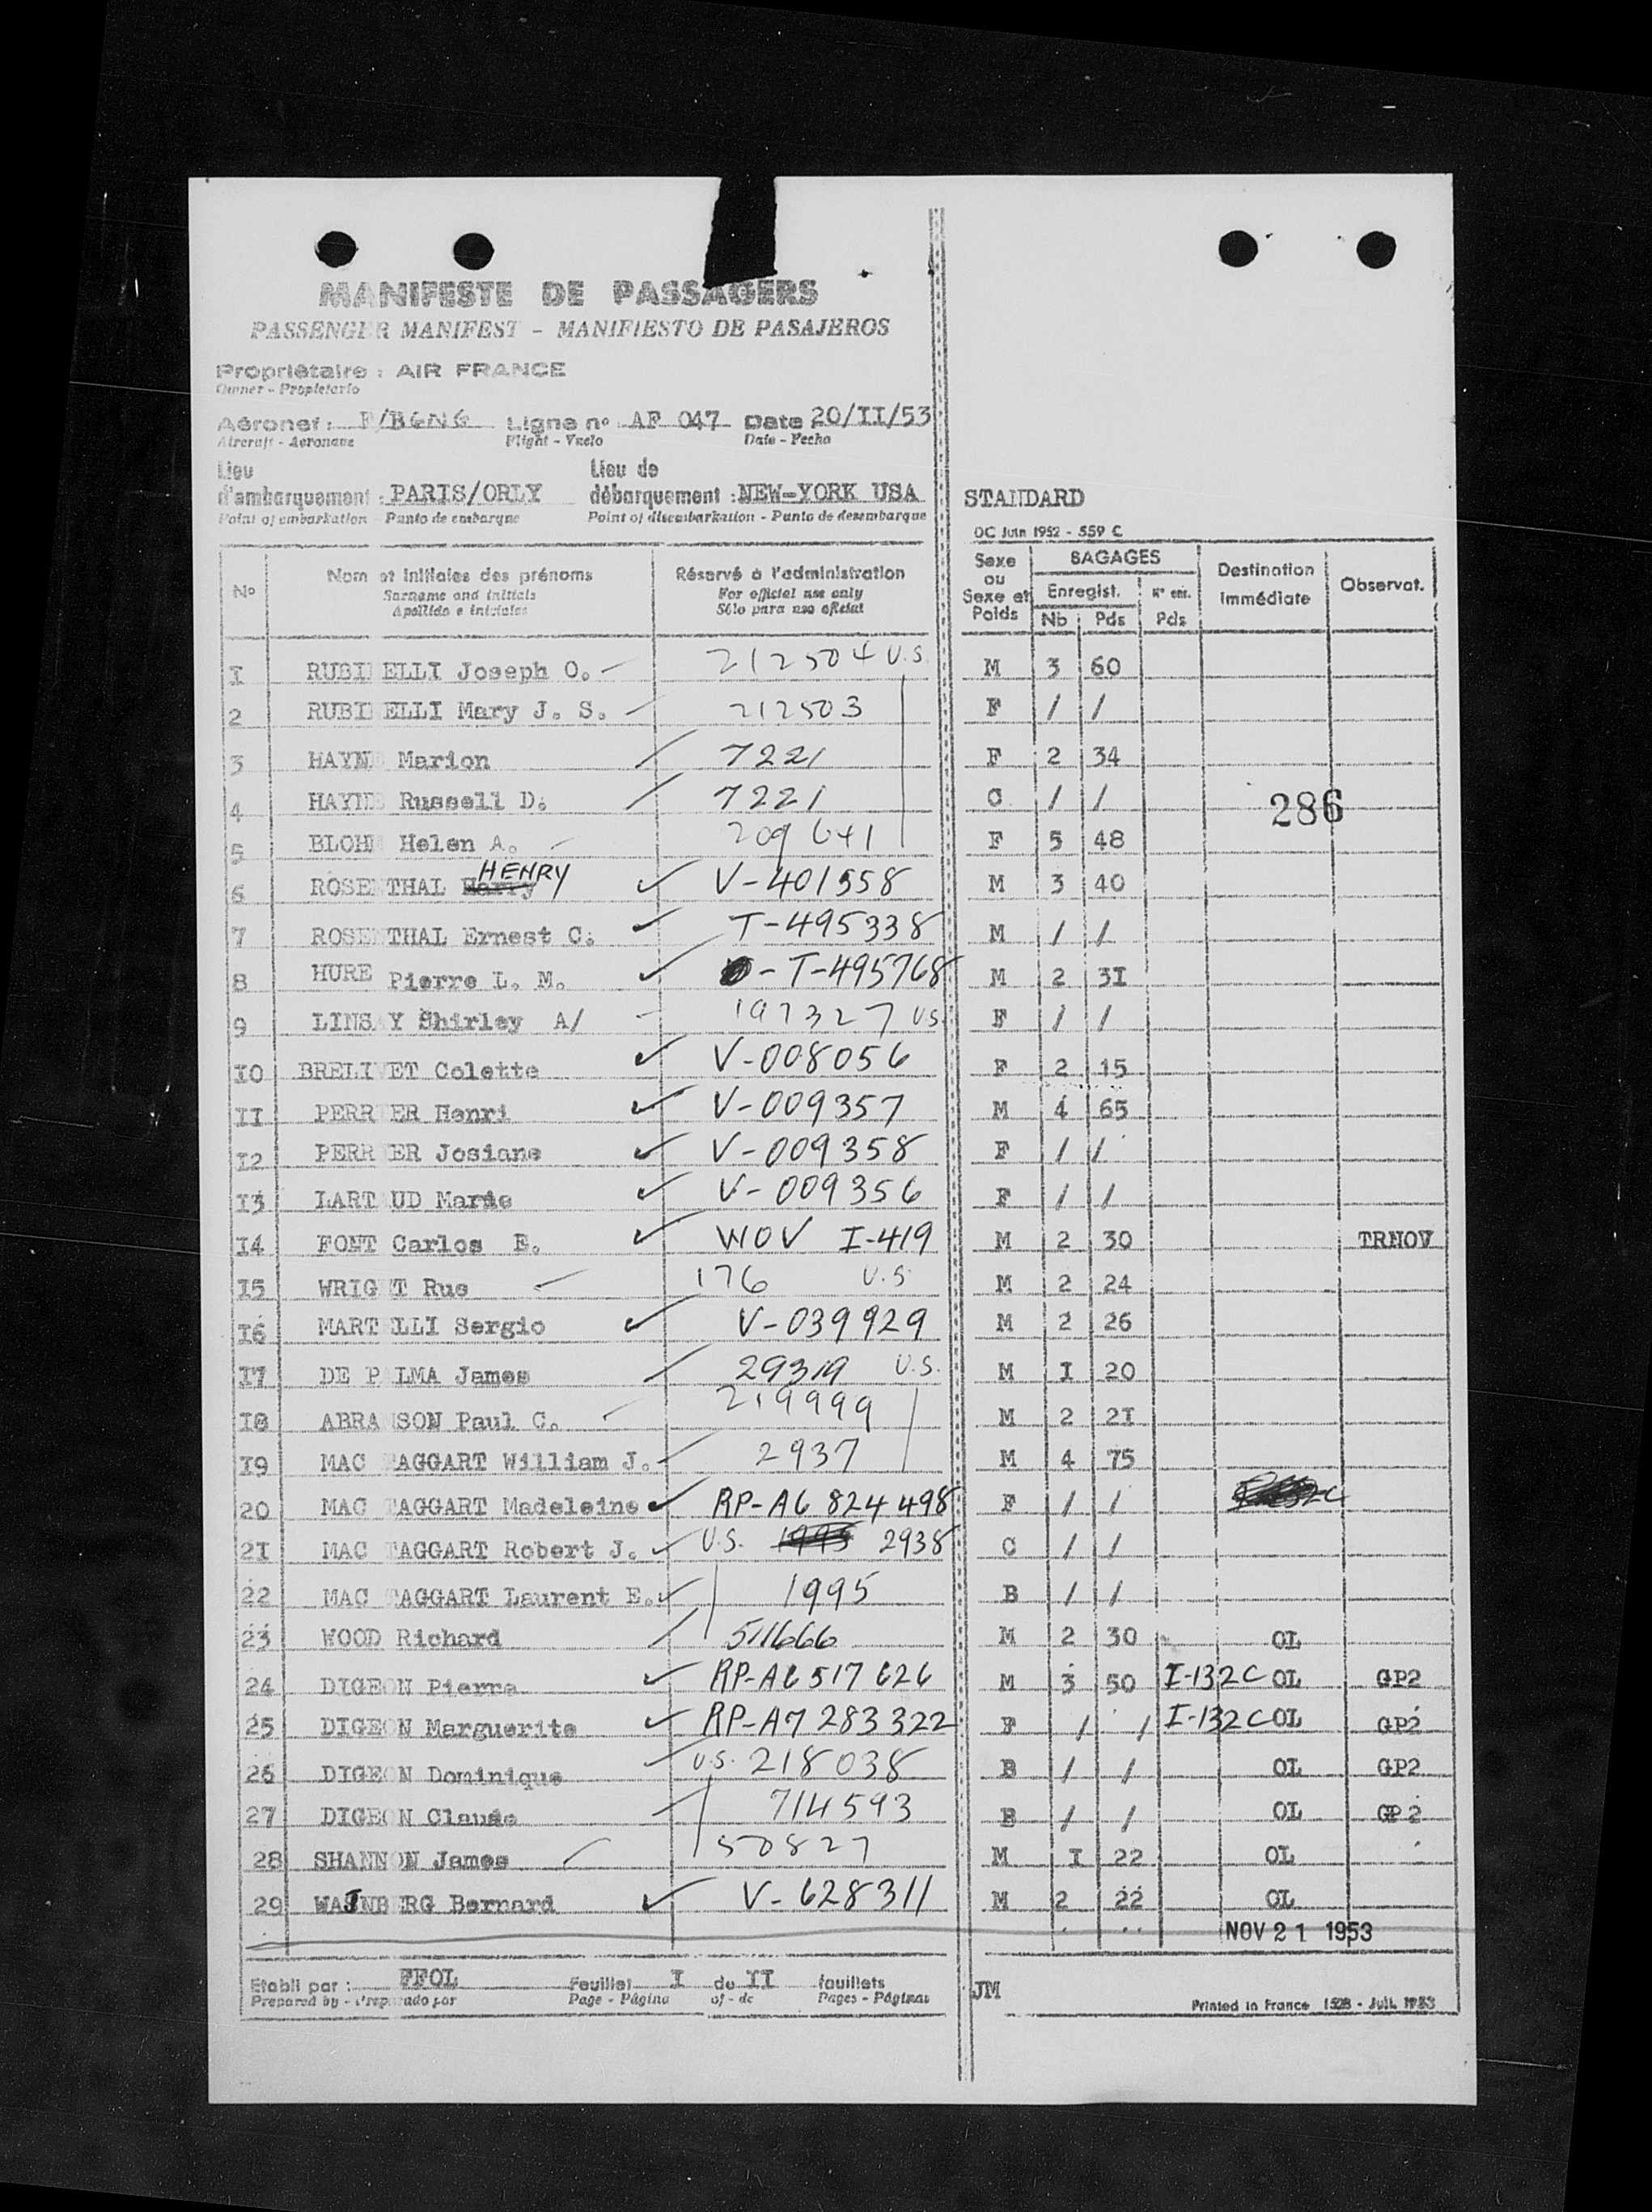 MANIFESTE DE PASSAGERS
PASSENGER MANIFEST - MANIFIESTO DE PASAJEROS
Propriétaire : AIR FRANCE
Owner - Propietario
Aéronef : Ligne n° AF 047 Date 20/II/53
Aircraft - Aeronave Flight - Vuelo Date - Fecha
Lieu d'embarquement : PARIS/ORLY Lieu de débarquement : NEW-YORK USA
Point of embarkation - Punto de embarque Point of disembarkation - Punto de desembarque
STANDARD
OC Juin 1952 - 559 C
N° Nom et initiales des prénoms Réservé à l'administration Sexe ou Sexe et Poids BAGAGES Destination immédiate Observat.
Surname and initials For official use only Enregist. N° enr.
Apellido e iniciales Sólo para uso oficial Nb Pds Pds
I RUBI ELLI Joseph O. 212504 U.S. M 3 60
2 RUBI ELLI Mary J. S. 212503 F / /
3 HAYN Marion 7221 F 2 34
4 HAYNS Russell D. 7221 C / /
286
5 BLOHM Helen A. 209641 F 5 48
6 ROSENTHAL Harry HENRY V-401558 M 3 40
7 ROSENTHAL Ernest C. T-495338 M / /
8 HURE Pierre L. M. - T-495768 M 2 3I
9 LINSAY Shirley A/ 197327 US. F / /
IO BRELIVET Colette V-008056 F 2 15
II PERRIER Henri V-009357 M 4 65
I2 PERRIER Josiane V-009358 F / /
I3 LARTAUD Marie V-009356 F / /
I4 FONT Carlos E. WOV I-419 M 2 30 TRNOV
I5 WRIGHT Rus 176 U.S. M 2 24
I6 MARTELLI Sergio V-039929 M 2 26
I7 DE PALMA James 29319 U.S. M I 20
I8 ABRAMSON Paul C. 219999 M 2 2I
I9 MAC TAGGART William J. 2937 M 4 75
20 MAC TAGGART Madeleine RP-A6 824 498 F / /
2I MAC TAGGART Robert J. U.S. 1995 2938 C / /
22 MAC TAGGART Laurent E. 1995 B / /
23 WOOD Richard 511666 M 2 30 OL
24 DIGEON Pierre RP-A6 517 626 M 3 50 I-132C OL GP2
25 DIGEON Marguerite RP-A7 283 322 F / / I-132C OL GP2
26 DIGEON Dominique U.S. 218038 B / / OL GP2
27 DIGEON Claude 714593 B / / OL GP2
28 SHANNON James 50827 M I 22 OL
29 WAJNBERG Bernard V-628311 M 2 22 OL
NOV 21 1953
Etabli par : FFOL Feuillet I de II feuillets JM
Prepared by - Preparado por Page - Página of - de Pages - Páginas Printed in France 1528 - Juil. 1953